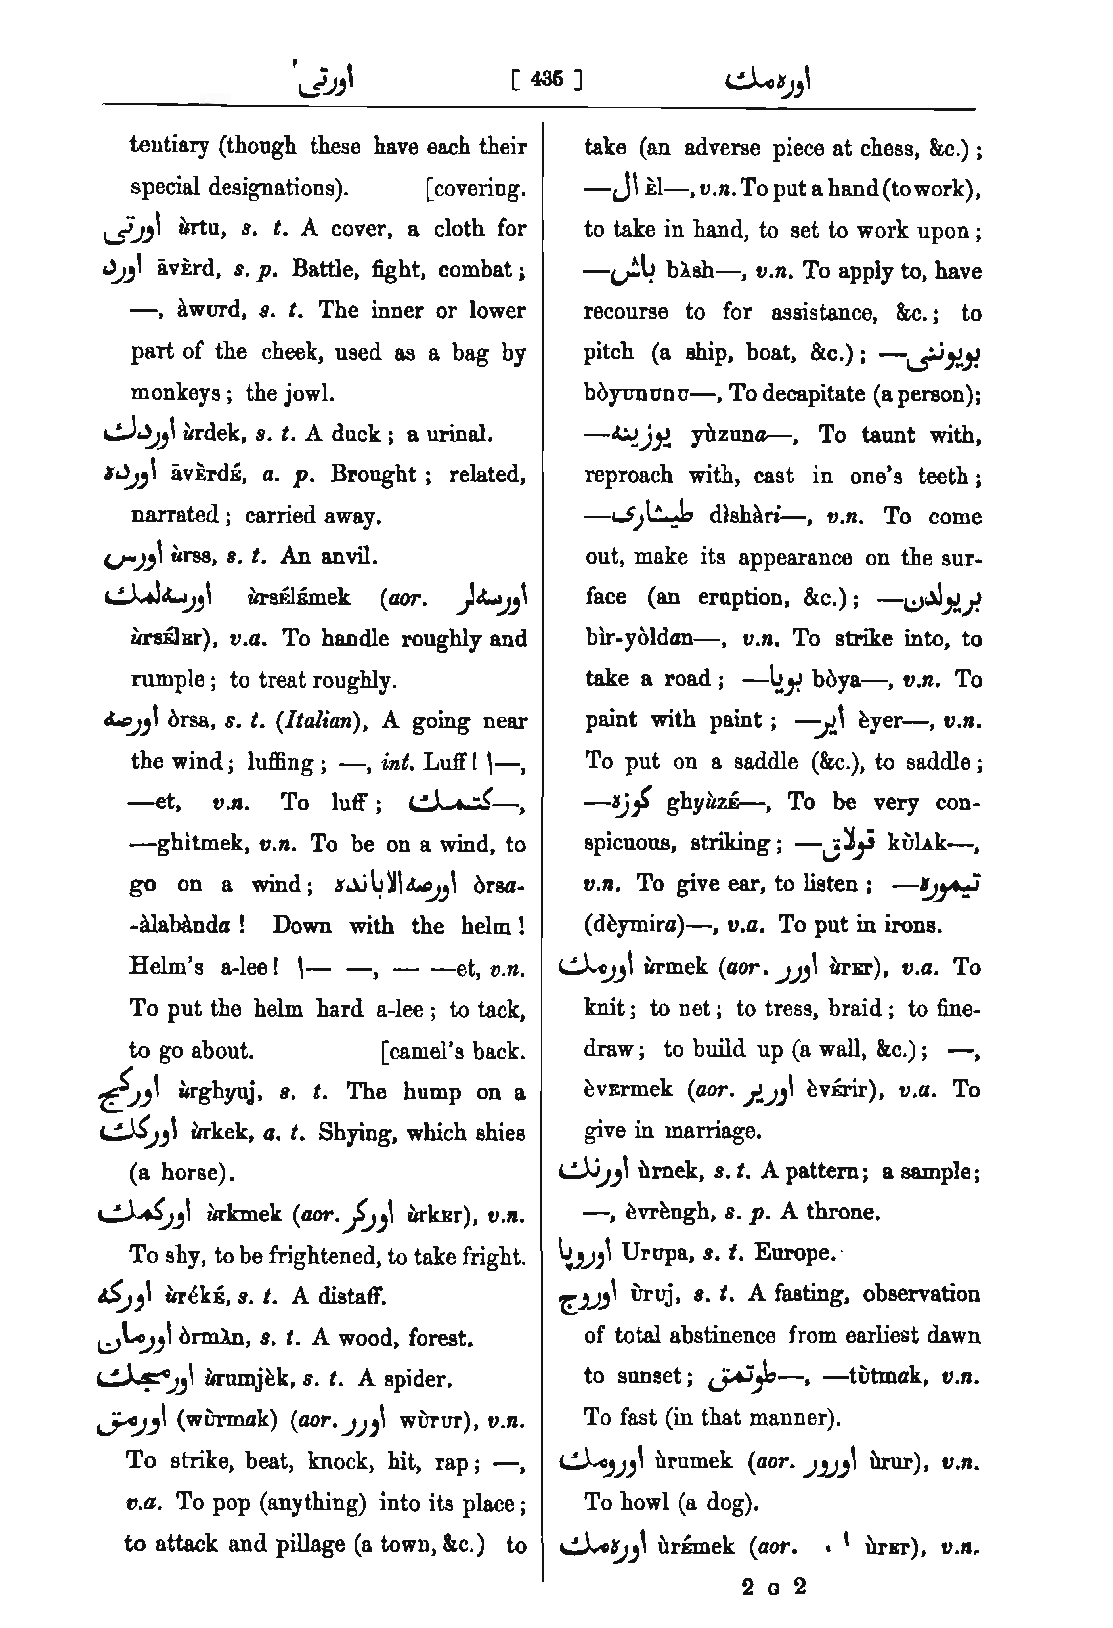 اورتی [ 435 ] اورەمك
tentiary (though these have each their
special designations). [covering.
اورتی ùrtu, s. t. A cover, a cloth for
اورد āvÈrd, s. p. Battle, fight, combat;
—, àwurd, s. t. The inner or lower
part of the cheek, used as a bag by
monkeys; the jowl.
اوردك ùrdek, s. t. A duck; a urinal.
اورده āvÈrdÉ, a. p. Brought; related,
narrated; carried away.
اورس ùrss, s. t. An anvil.
اورسهلمك ùrsÉlÉmek (aor. اورسهلر
ùrsÉlEr), v.a. To handle roughly and
rumple; to treat roughly.
اورصه òrsa, s. t. (Italian), A going near
the wind; luffing; —, int. Luff! \—,
—et, v.n. To luff; كتمك—,
—ghitmek, v.n. To be on a wind, to
go on a wind; اورصه الاباندە òrsa-
-àlabànda! Down with the helm!
Helm's a-lee! \— —, — —et, v.n.
To put the helm hard a-lee; to tack,
to go about. [camel's back.
اوركج ùrghyuj, s. t. The hump on a
اوركك ùrkek, a. t. Shying, which shies
(a horse).
اوركمك ùrkmek (aor. اوركر ùrkEr), v.n.
To shy, to be frightened, to take fright.
اوركه ùrékÉ, s. t. A distaff.
اورمان òrmÀn, s. t. A wood, forest.
اورمجك ùrumjèk, s. t. A spider.
اورمق (wùrmak) (aor. اورر wùrur), v.n.
To strike, beat, knock, hit, rap; —,
v.a. To pop (anything) into its place;
to attack and pillage (a town, &c.) to
take (an adverse piece at chess, &c.);
—ال Èl—, v.n. To put a hand (to work),
to take in hand, to set to work upon;
—باش bÀsh—, v.n. To apply to, have
recourse to for assistance, &c.; to
pitch (a ship, boat, &c.); —بوينی
bòyununu—, To decapitate (a person);
—يوزينه yùzuna—, To taunt with,
reproach with, cast in one's teeth;
—طيشاری dìshàri—, v.n. To come
out, make its appearance on the sur-
face (an eruption, &c.); —بريولدن
bìr-yòldan—, v.n. To strike into, to
take a road; —بويا bòya—, v.n. To
paint with paint; —اير èyer—, v.n.
To put on a saddle (&c.), to saddle;
—كوزه ghyùzÉ—, To be very con-
spicuous, striking; —قولاق kùlAk—,
v.n. To give ear, to listen; —تيموره
(dèymira)—, v.a. To put in irons.
اورمك ùrmek (aor. اورر ùrEr), v.a. To
knit; to net; to tress, braid; to fine-
draw; to build up (a wall, &c.); —,
èvErmek (aor. اورير èvÉrir), v.a. To
give in marriage.
اورنك ùrnek, s. t. A pattern; a sample;
—, èvrèngh, s. p. A throne.
اوروپا Urupa, s. t. Europe.
اوروج ùruj, s. t. A fasting, observation
of total abstinence from earliest dawn
to sunset; طوتمق—, —tùtmak, v.n.
To fast (in that manner).
اورومك ùrumek (aor. اورور ùrur), v.n.
To howl (a dog).
اورەمك ùrÉmek (aor. ùrEr), v.n.
2 G 2